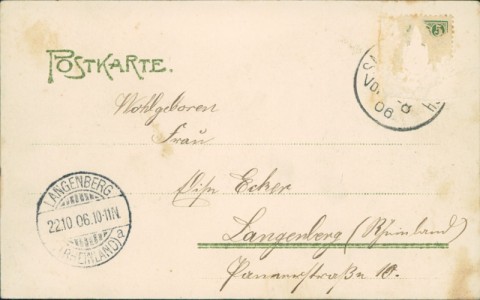 5
POSTKARTE.
Wohlgeboren
Frau
Ecker
Langenberg (Rheinland)
10.
Vo
06
LANGENBERG
22.10 06.10-11N.
(RHEINLAND) a